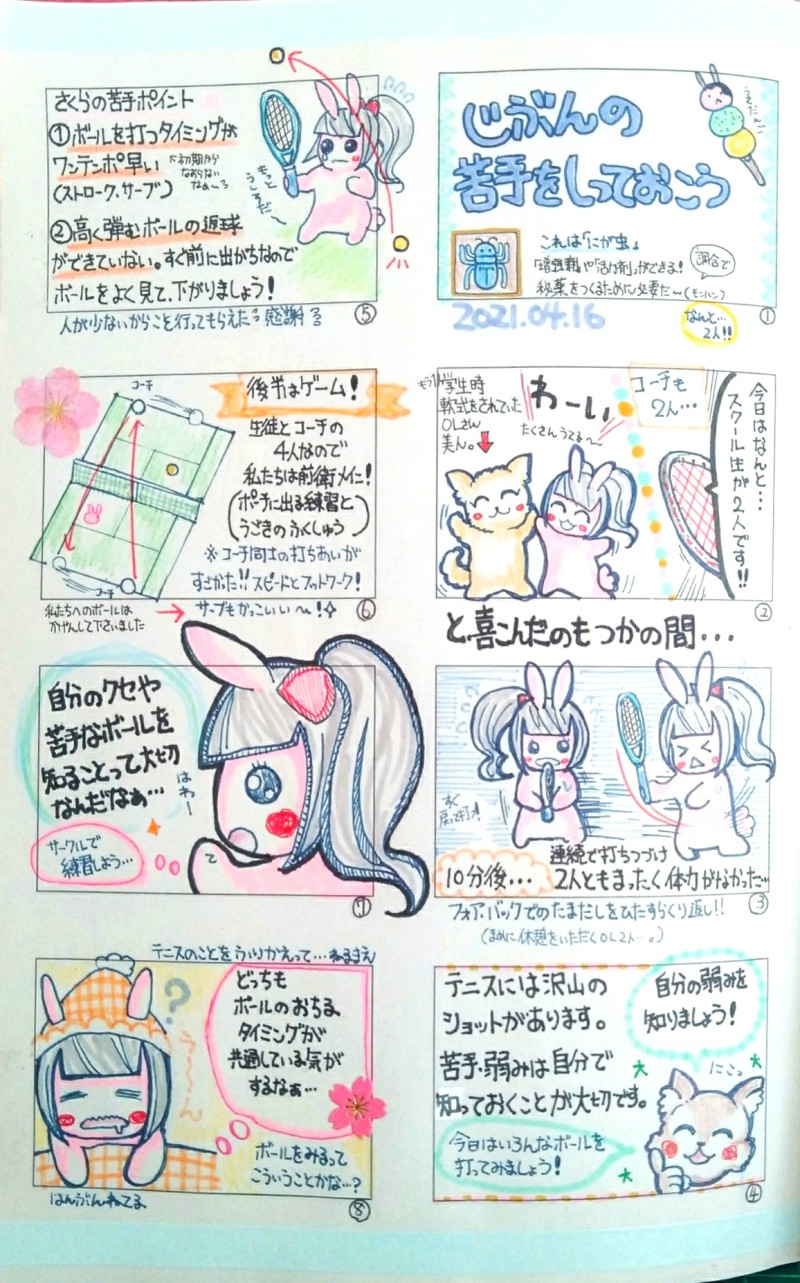 じぶんの
苦手をしっておこう
これは「にが虫」
「増強剤」や「活力剤」ができる!
調合で
秘薬をつくるために必要だ〜(モンハン)
①
2021.04.16
なんと…
2人!!
今日はなんと…
スクール生が2人です!!
コーチも
2人…
わーい
たくさんうてる〜
学生時
軟式をされていた
OLさん
美人。
②
と、喜こんだのもつかの間…
10分後…
連続で打ちつづけ
2人ともまったく体力がなかった…
③
フォア、バックでのたまだしをひたすらくり返し!!
(まめに休憩をいただくOL2人…。)
テニスには沢山の
ショットがあります。
苦手・弱みは自分で
知っておくことが大切です。
自分の弱みを
知りましょう!
にこっ
今日はいろんなボールを
打ってみましょう!
④
さくらの苦手ポイント
①ボールを打つタイミングが
ワンテンポ早い
(ストローク、サーブ)
初期から
なおらない
なぁ〜
②高く弾むボールの返球
ができていない。すぐ前に出がちなので
ボールをよく見て、下がりましょう!
もっと
うごそだ〜
⑤
人が少ないからこそ行ってもらえた 感謝
後半はゲーム!
生徒とコーチの
4人なので
私たちは前衛メイン!
(ポーチに出る練習と
うごきのふくしゅう)
※コーチ同士の打ちあいが
すごかった!!スピードとフットワーク!
サーブもかっこいい〜!
⑥
コーチ
コーチ
私たちへのボールは
かげんして下さいました
自分のクセや
苦手なボールを
知ることって大切
なんだなぁ…
はわー
サークルで
練習しよう…
て
⑦
テニスのことをふりかえって…ねるまえ
どっちも
ボールのおちる
タイミングが
共通している気が
するなぁ…
?
う〜ん
ボールをみるって
こういうことかな…?
はんぶんねてる
⑧